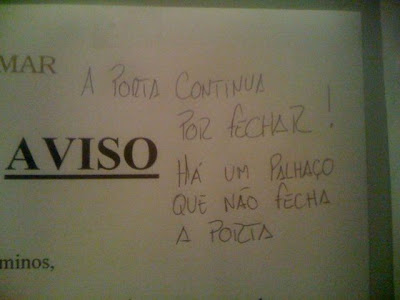 MAR
A PORTA CONTINUA
POR FECHAR!
AVISO
HÁ UM PALHAÇO
QUE NÃO FECHA
A PORTA
minos,